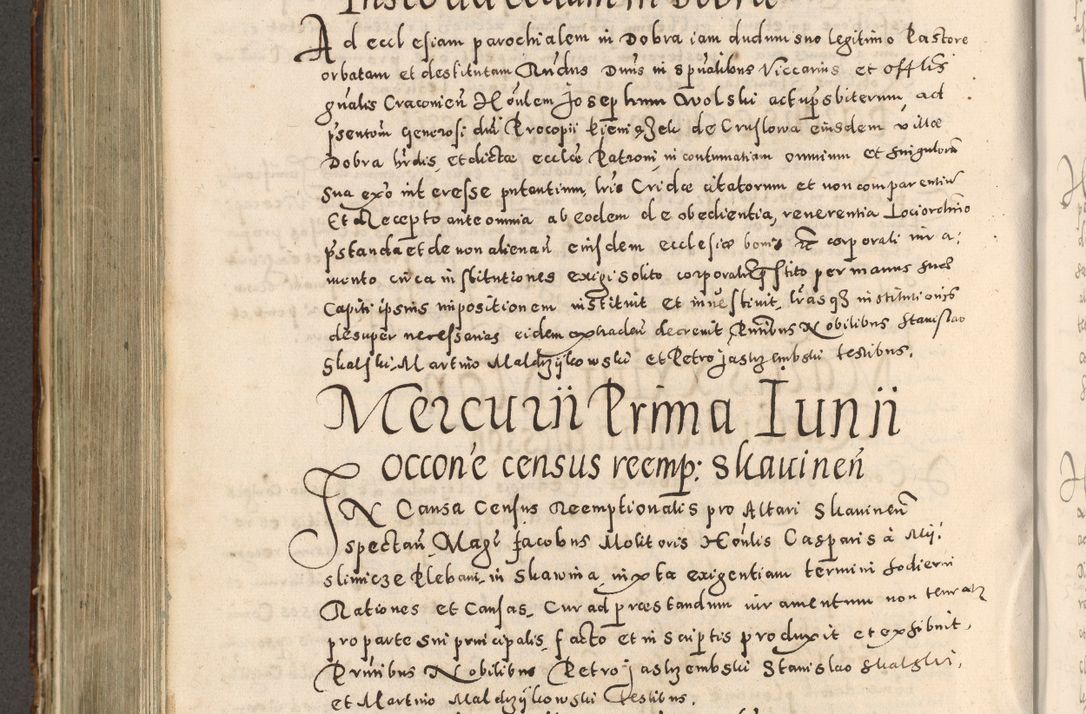 Ad eccl esiam parochialem in Dobra iam dudum suo legitimo Pastore
orbatam et destitutam Rndus Dnus in spualibus Viccarius et offlis
gnalis Cracovien Honlem Josephum Wolski act. psbiterum, ad
psentom Generosi dni Procopii de Cruslowa eiusdem villæ
Dobra hrdis et dictæ ecclæ Patroni in contumatiam omnium et singulorum
sua exo interesse putantium, lris Cridæ citatorum et non comparentium
Et Recepto ante omnia ab eodem de obedientia, reverentia
pstanda et de non alienan eiusdem ecclesiæ bonis etc corporali iura:
mento circa institutiones exigi solito corporaliter pstito per manus suæ
Capiti ipsius impositionem instituit et investivit, lrasq institutionis
desuper necessarias eidem extraden decrevit Pntibus Nobilibus Stanislao
Skalski Martino Maldrzijkowski et Petro Jastrzembski testibus.
Mercurii Prima Iunii
Occone census reemp: Skavinen
IN Causa Census Reemptionalis pro Altari Skavinen
spectan Magr Jacobus Molitoris Honlis Casparis à Mij:
slimicze Plebani in Skawina, iuxta exigentiam termini hodierni
Rationes et Causas, Cur ad præstandum iuramentum non teneatur
pro parte sui principalis facto et in scriptis produxit et exhibuit,
Pntibus Nobilibus Petro Jastrzembski Stanislao Skalski,
et Martino Maldrzijkowski Testibus.